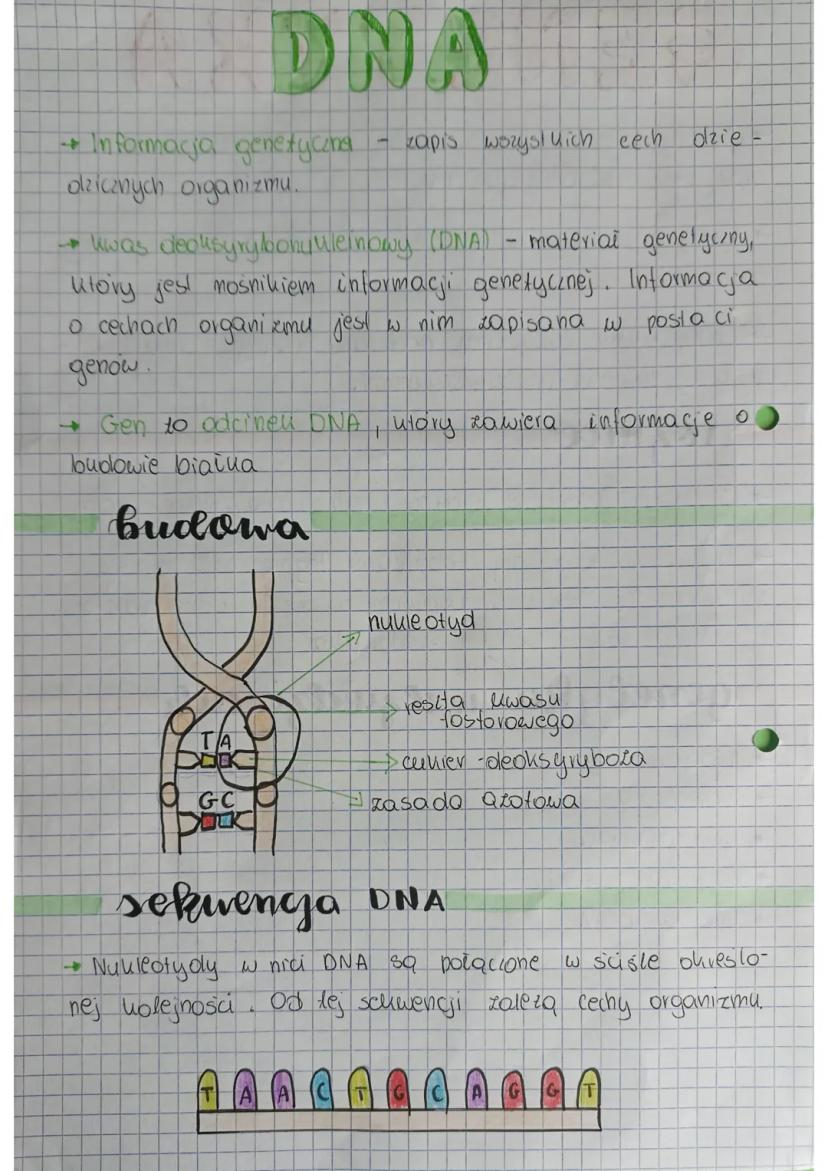 DNA
→ Informacja genetyczna - zapis wszystkich cech dzie-
dzicznych organizmu.
→ Kwas deoksyrybonukleinowy (DNA) - materiał genetyczny,
który jest nośnikiem informacji genetycznej. Informacja
o cechach organizmu jest w nim zapisana w postaci
genów.
→ Gen to odcinek DNA, który zawiera informacje o
budowie białka
budowa
nukleotyd
reszta kwasu
fosforowego
T A
cukier - deoksyryboza
G C
zasada azotowa
sekwencja DNA
→ Nukleotydy w nici DNA są połączone w ściśle określo-
nej kolejności. Od tej sekwencji zależą cechy organizmu.
T A A C T G C A G G T